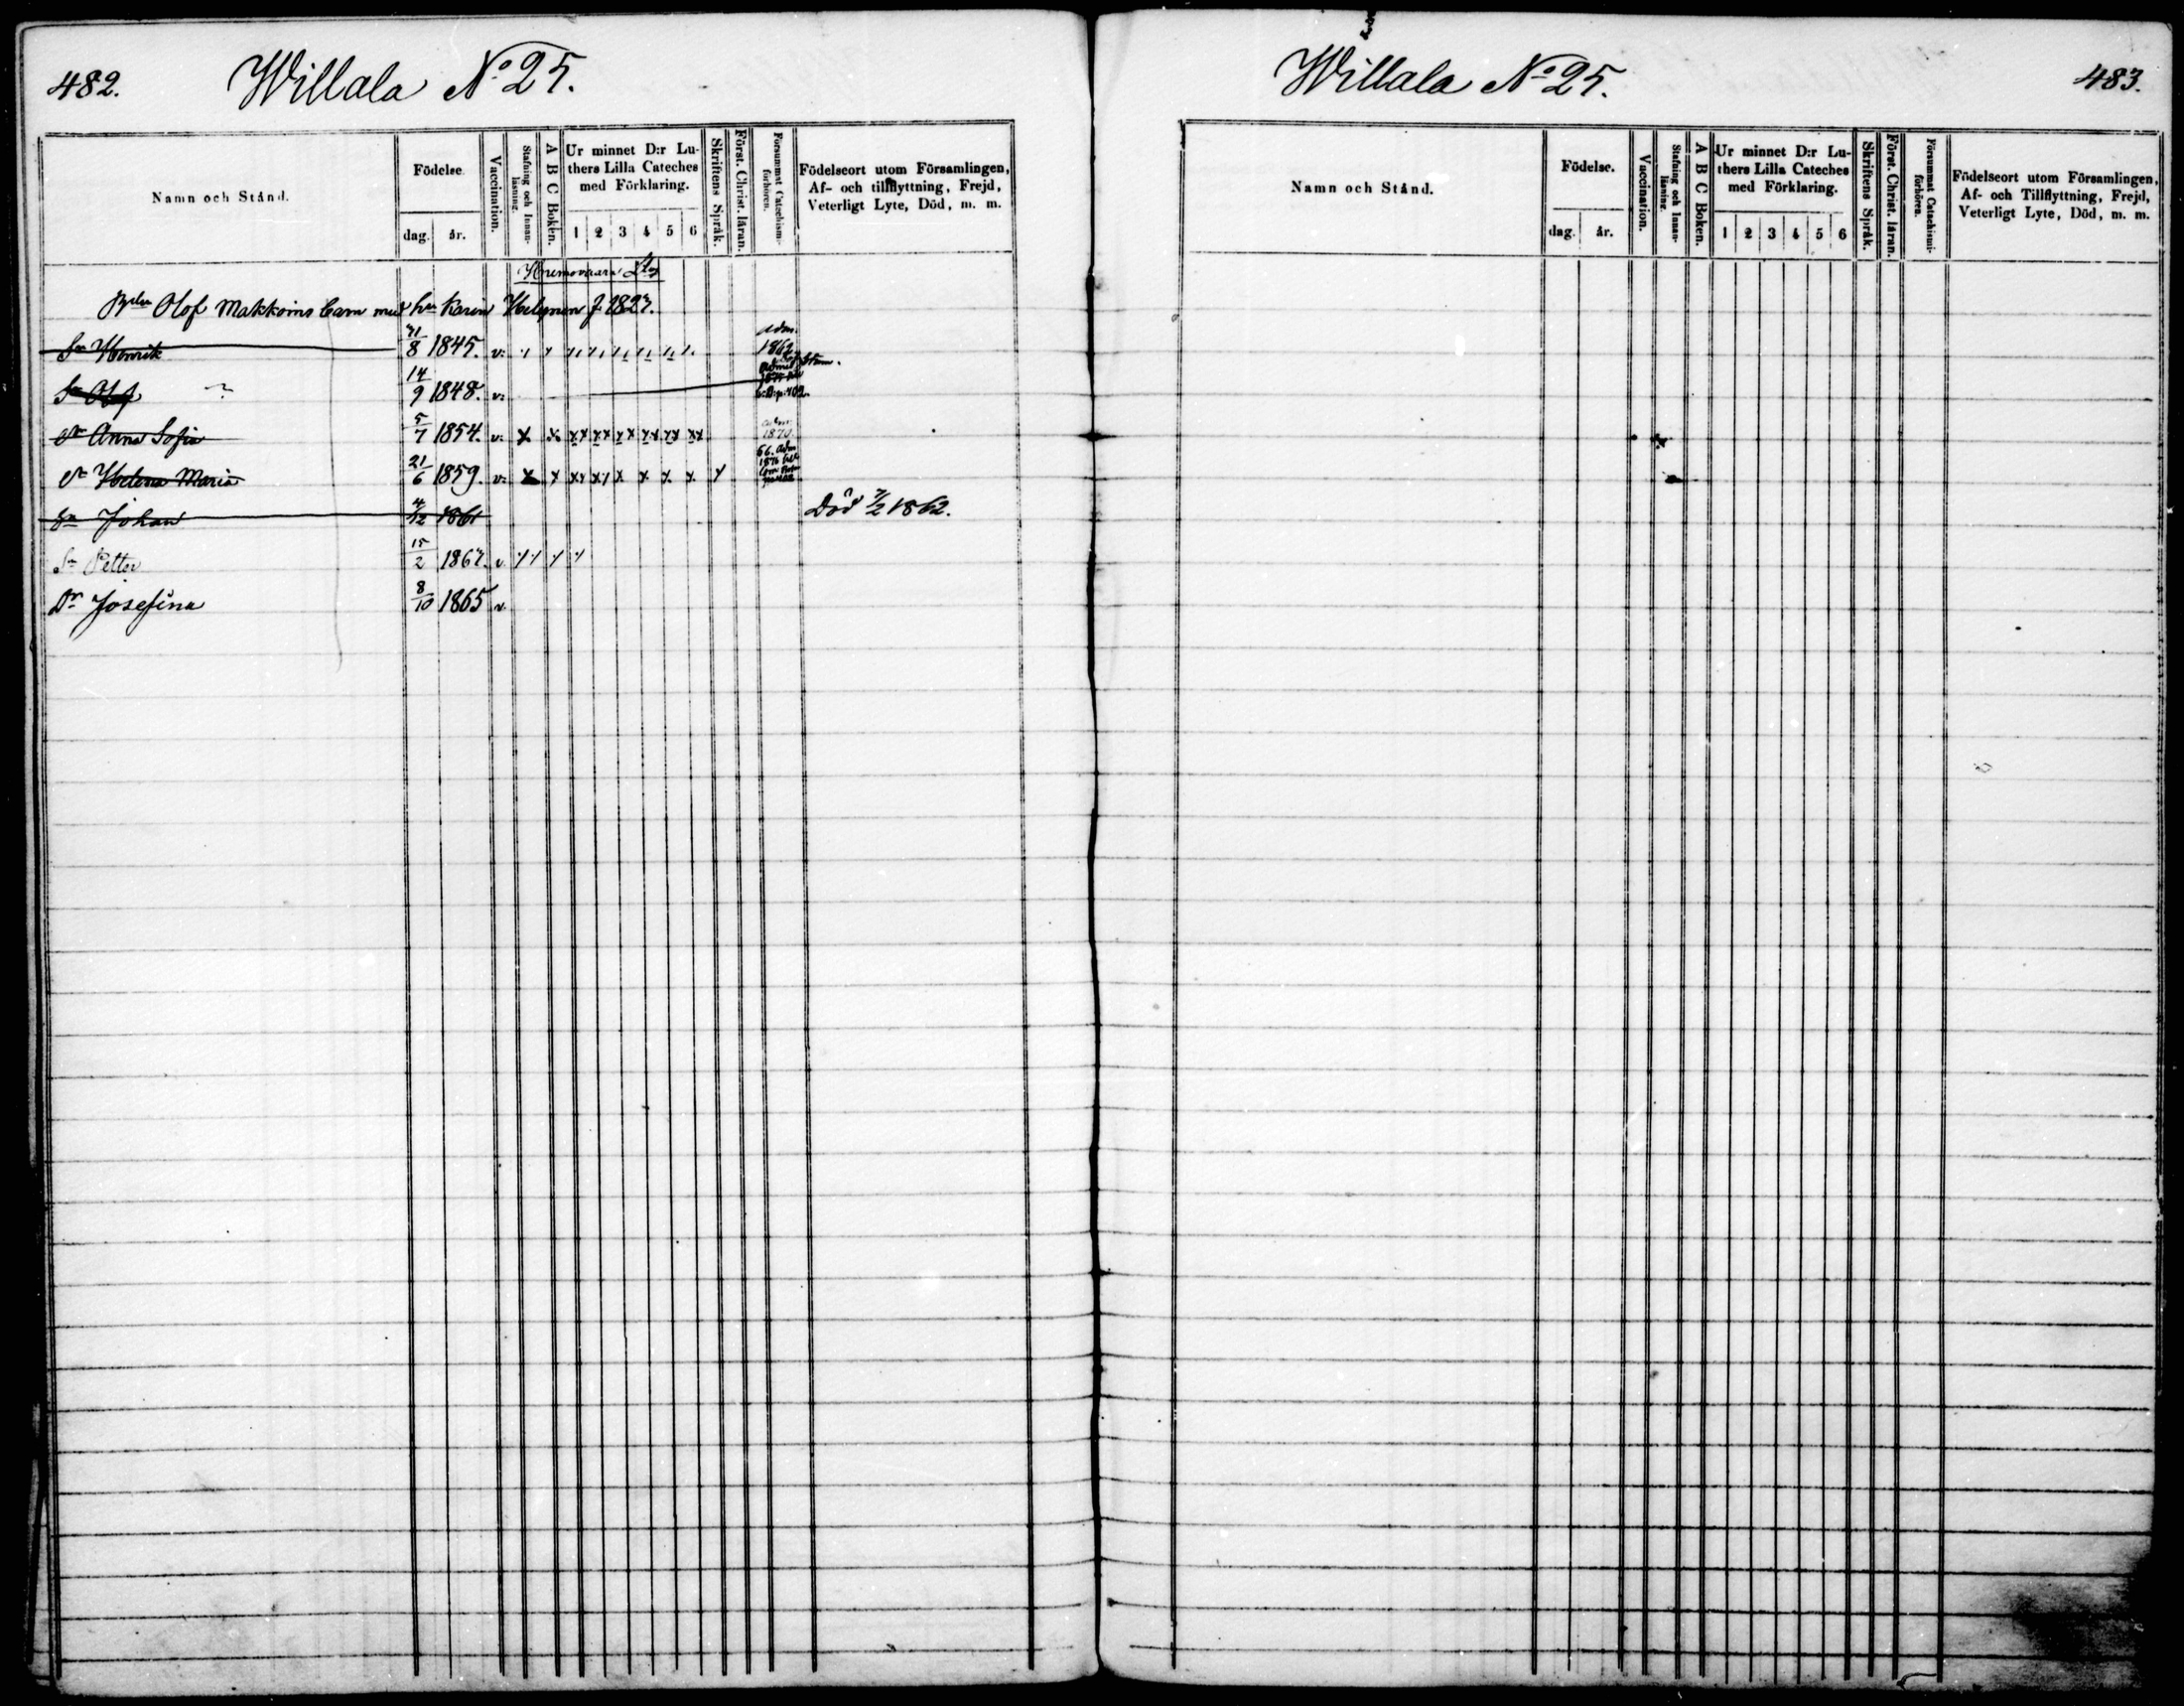 482. Willala No 25.
Namn och Stånd.
Födelse
dag. år.
Vaccination.
Stafning och Innan-
läsning.
A B C Boken.
Ur minnet D:r Lu-
thers Lilla Cateches
med Förklaring.
1 2 3 4 5 6
Skriftens Språk.
Först. Christ. läran.
Försummat Catechismi-
förhören.
Födelseort utom Församlingen,
Af- och tillflyttning, Frejd,
Veterligt Lyte, Död, m. m.
Olof Makkoins barn med hu Karin f 1823.
Sn Henrik 8 1845. v. adm. 1862
Sn Olof 14/9 1848. v.
Dr Anna Sofia 5/7 1854. v. adm. 1870
Dr Helena Maria 21/6 1859. v.
Sn Johan 4/12 1861 Död 7/2 1862.
Sn Petter 15/2 1863. v.
Dr Josefina 8/10 1865 v.
Willala No 25. 483.
Namn och Stånd.
Födelse.
dag. år.
Vaccination.
Stafning och Innan-
läsning.
A B C Boken.
Ur minnet D:r Lu-
thers Lilla Cateches
med Förklaring.
1 2 3 4 5 6
Skriftens Språk.
Först. Christ. läran.
Försummat Catechismi-
förhören.
Födelseort utom Församlingen,
Af- och Tillflyttning, Frejd,
Veterligt Lyte, Död, m. m.